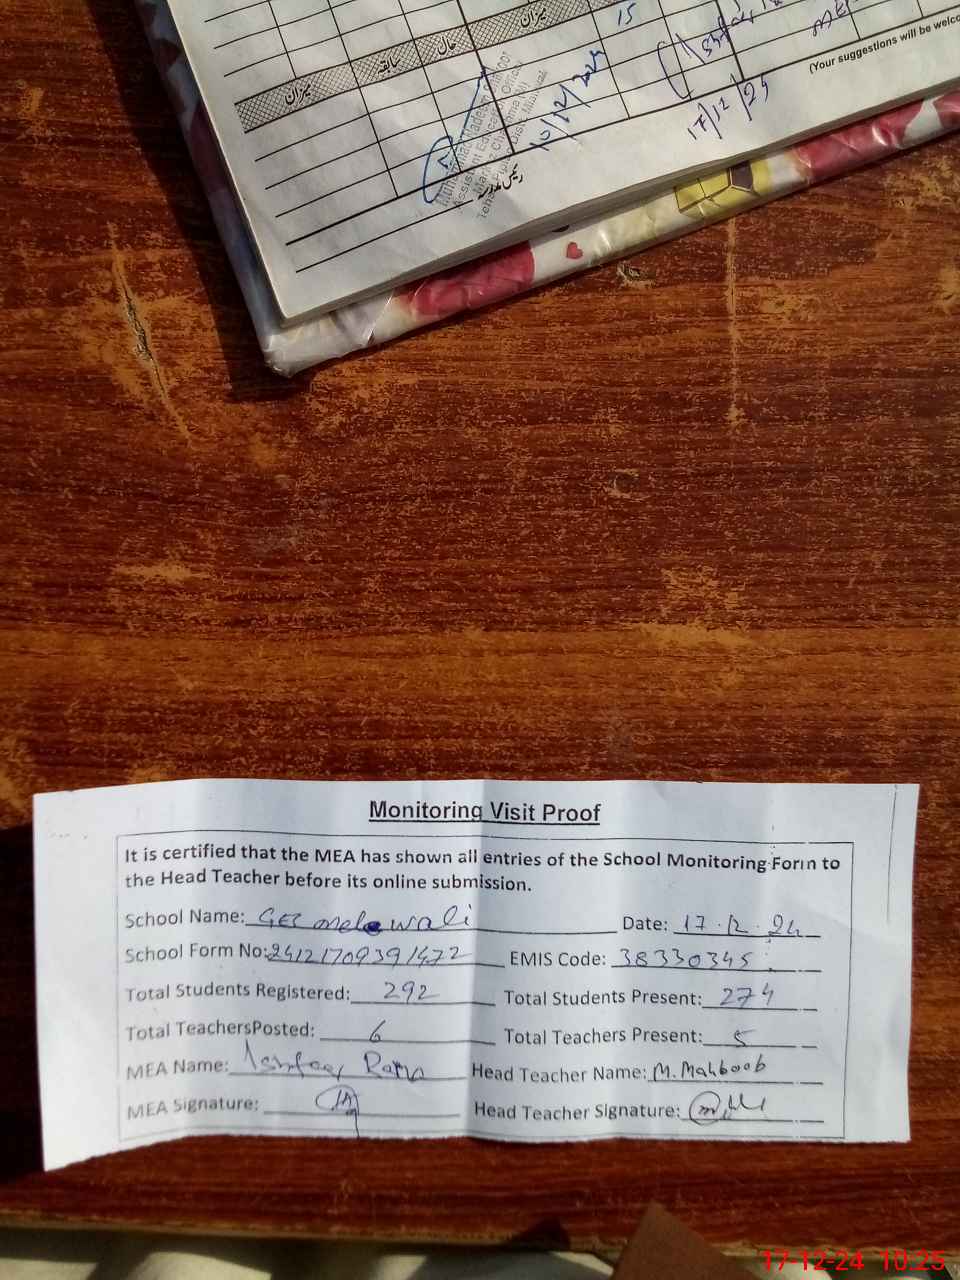 میزان
میزان حال سابقہ
15
10/12/2024
Assistant Education Officer
رئیس مدرسہ
17/12/24
(Your suggestions will be welco
Monitoring Visit Proof
It is certified that the MEA has shown all entries of the School Monitoring Form to
the Head Teacher before its online submission.
School Name: Date: 17.12.24
School Form No: 24121709391472 EMIS Code: 38330345
Total Students Registered: 292 Total Students Present: 274
Total TeachersPosted: 6 Total Teachers Present: 5
MEA Name: Ishfaq Rana Head Teacher Name: M. Mahboob
MEA Signature: Head Teacher Signature:
17-12-24 10:25